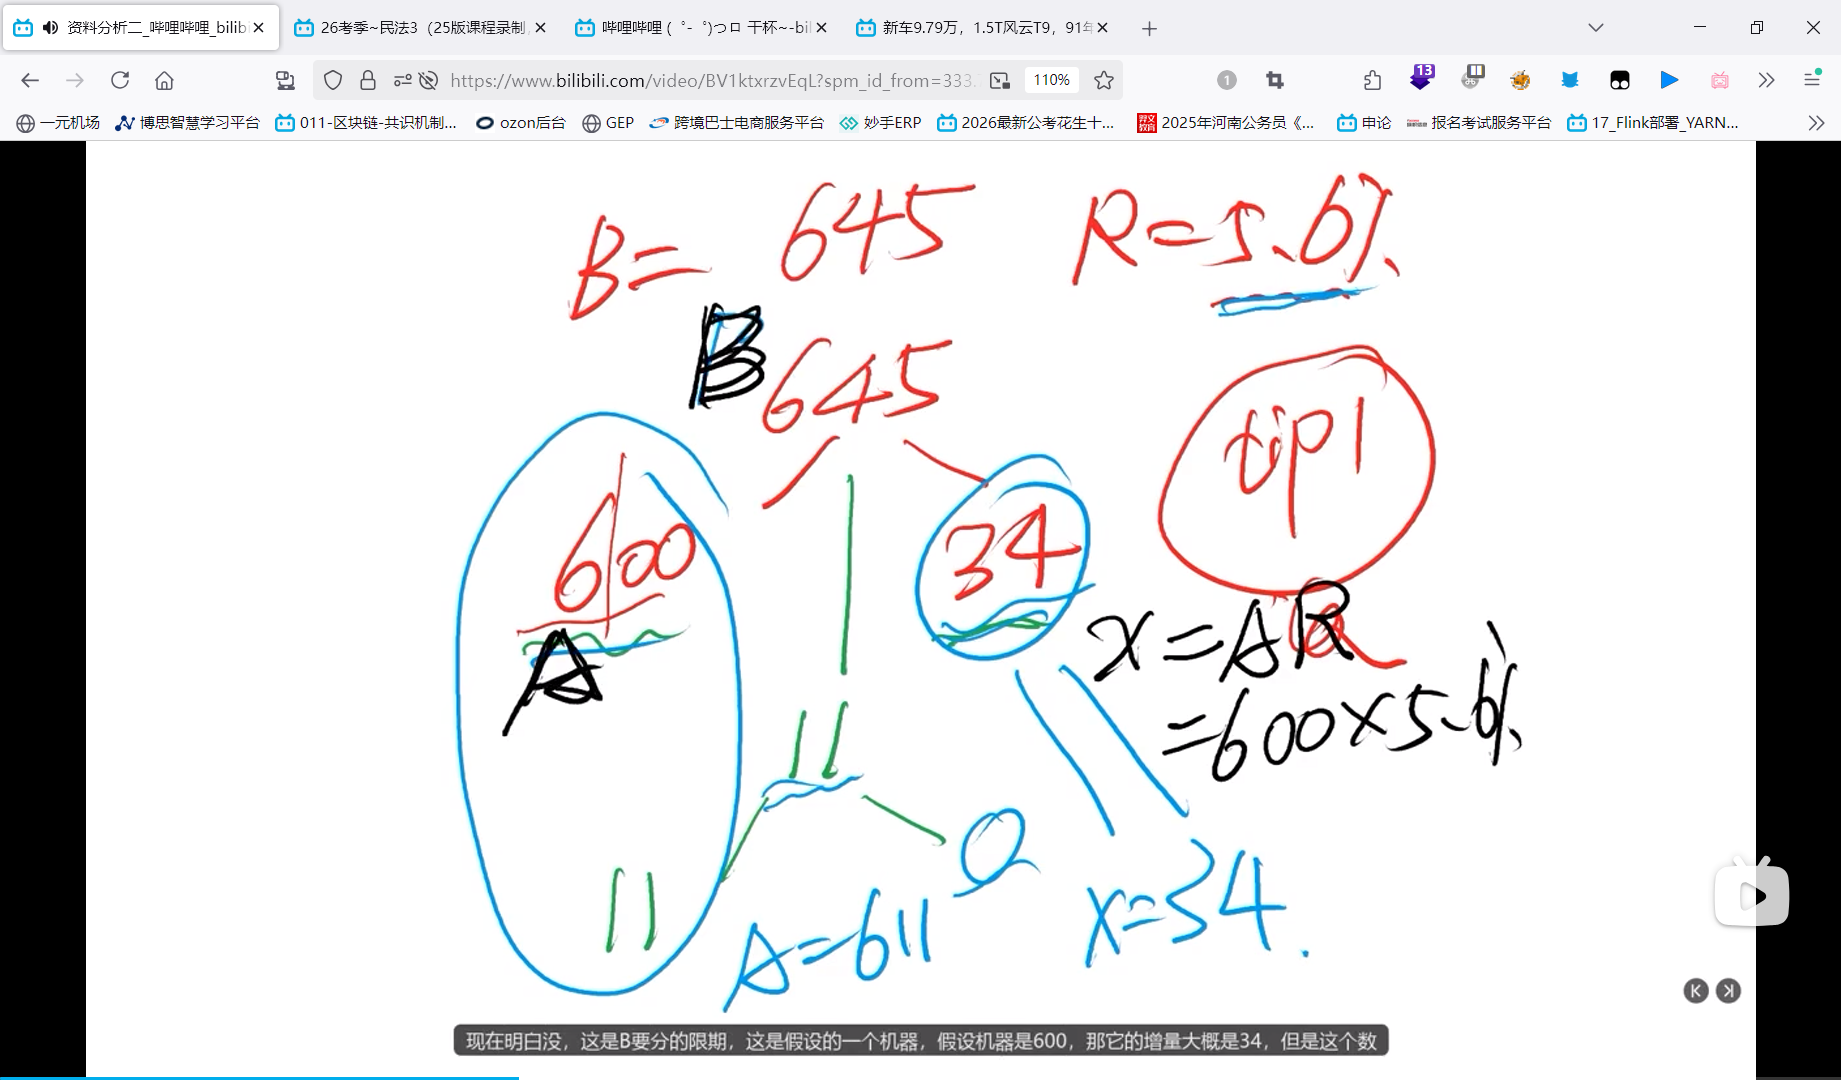 资料分析二_哔哩哔哩_bilibi
26考季~民法3（25版课程录制
哔哩哔哩 (゜-゜)つロ 干杯~-bil
新车9.79万，1.5T风云T9，91年
https://www.bilibili.com/video/BV1ktxrzvEqL?spm_id_from=333.
110%
1
13
一元机场
博思智慧学习平台
011-区块链-共识机制...
ozon后台
GEP
跨境巴士电商服务平台
妙手ERP
2026最新公考花生十...
2025年河南公务员《...
申论
报名考试服务平台
17_Flink部署_YARN...
B=645 R=5.6%
B 645
tip1
600 34
A
x=AR
=600×5.6%
11
11
A=611
x=34.
现在明白没，这是B要分的限期，这是假设的一个机器，假设机器是600，那它的增量大概是34，但是这个数